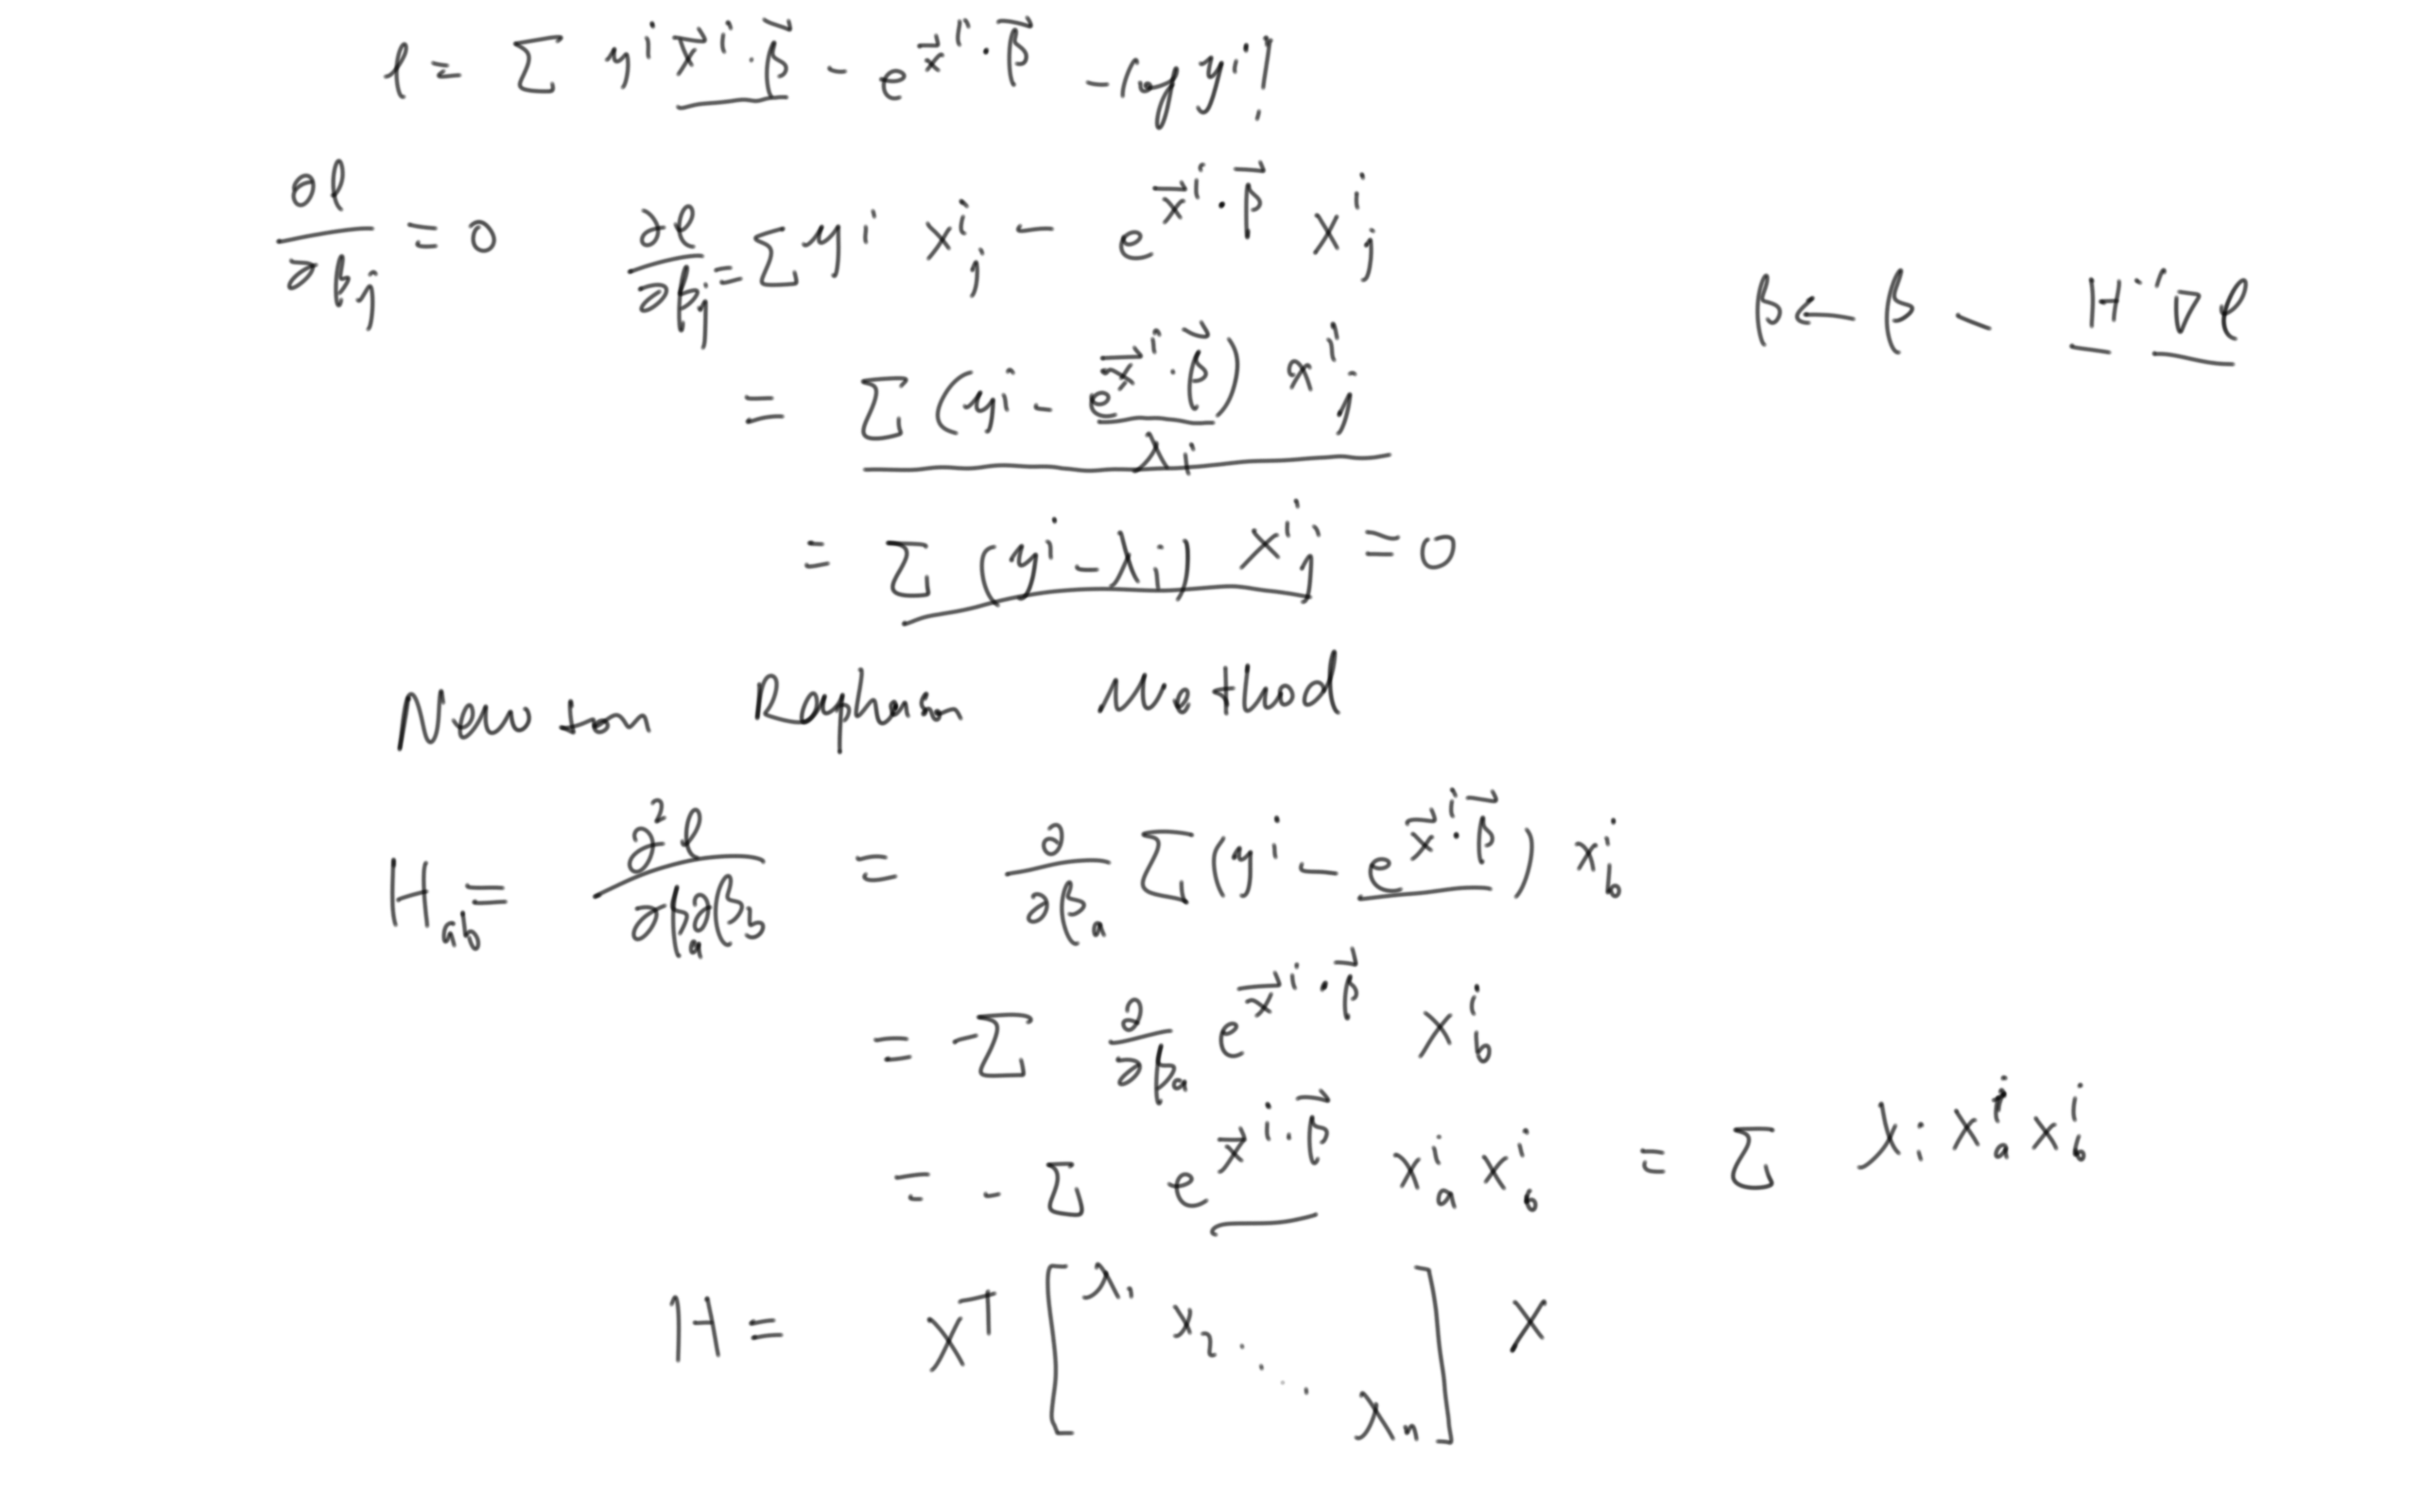 ℓ = Σ yⁱ x⃗ⁱ·β⃗ − e^{x⃗ⁱ·β⃗} − log yⁱ!
∂ℓ/∂βⱼ = 0   ∂ℓ/∂βⱼ = Σ yⁱ xⁱⱼ − e^{x⃗ⁱ·β⃗} xⁱⱼ
β ← β − H⁻¹∇ℓ
= Σ (yⁱ − e^{x⃗ⁱ·β⃗}) xⁱⱼ
λᵢ
= Σ (yⁱ − λᵢ) xⁱⱼ = 0
Newton Raphson Method
H_{ab} = ∂²ℓ/∂β_a∂β_b = ∂/∂β_a Σ (yⁱ − e^{x⃗ⁱ·β⃗}) xⁱ_b
= −Σ ∂/∂β_a e^{x⃗ⁱ·β⃗} xⁱ_b
= −Σ e^{x⃗ⁱ·β⃗} xⁱ_a xⁱ_b = Σ λᵢ xⁱ_a xⁱ_b
H = Xᵀ [λ₁ λ₂ ⋱ λₙ] X